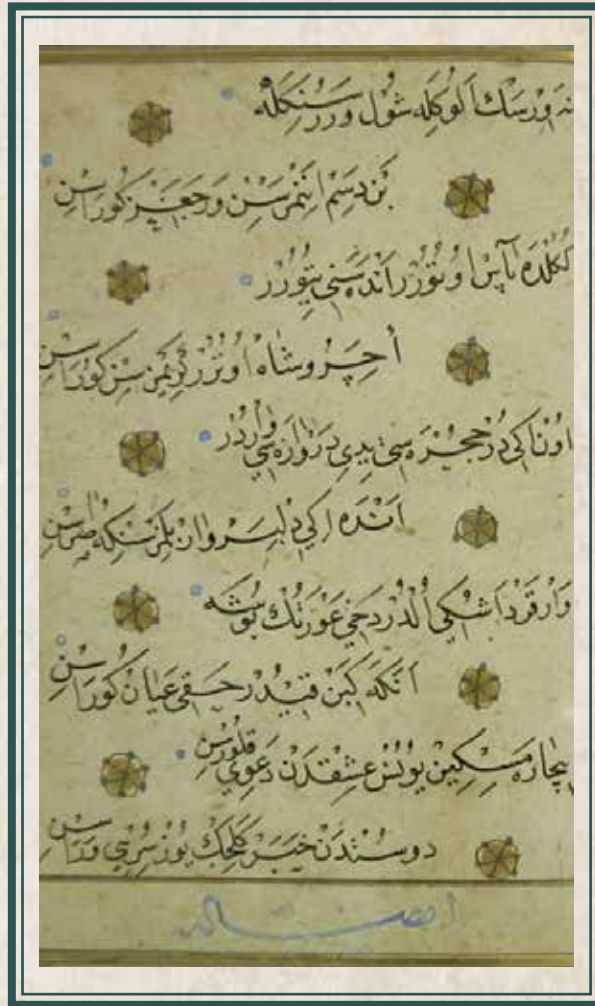 نه ورسك الوكله شول وررسنكله
بن دسم اننمزسن ورجغز كوراسن
اوتورر انده سني يتورر
اچرو شاه اوتورر كورمزسن كوراسن
اون اكي در حجره سي يدي دروازه سي واردر
انده اكي دلبر وار بلمزسنكه صراسن
وار قرداشكي الدر دخي عورتك بوشه
انكه كبن قيدر حقي عيان كوراسن
بيچاره مسكين يونس عشقدن دعوي قلورسن
دوستدن خبر كلجك يوز سري وراسن